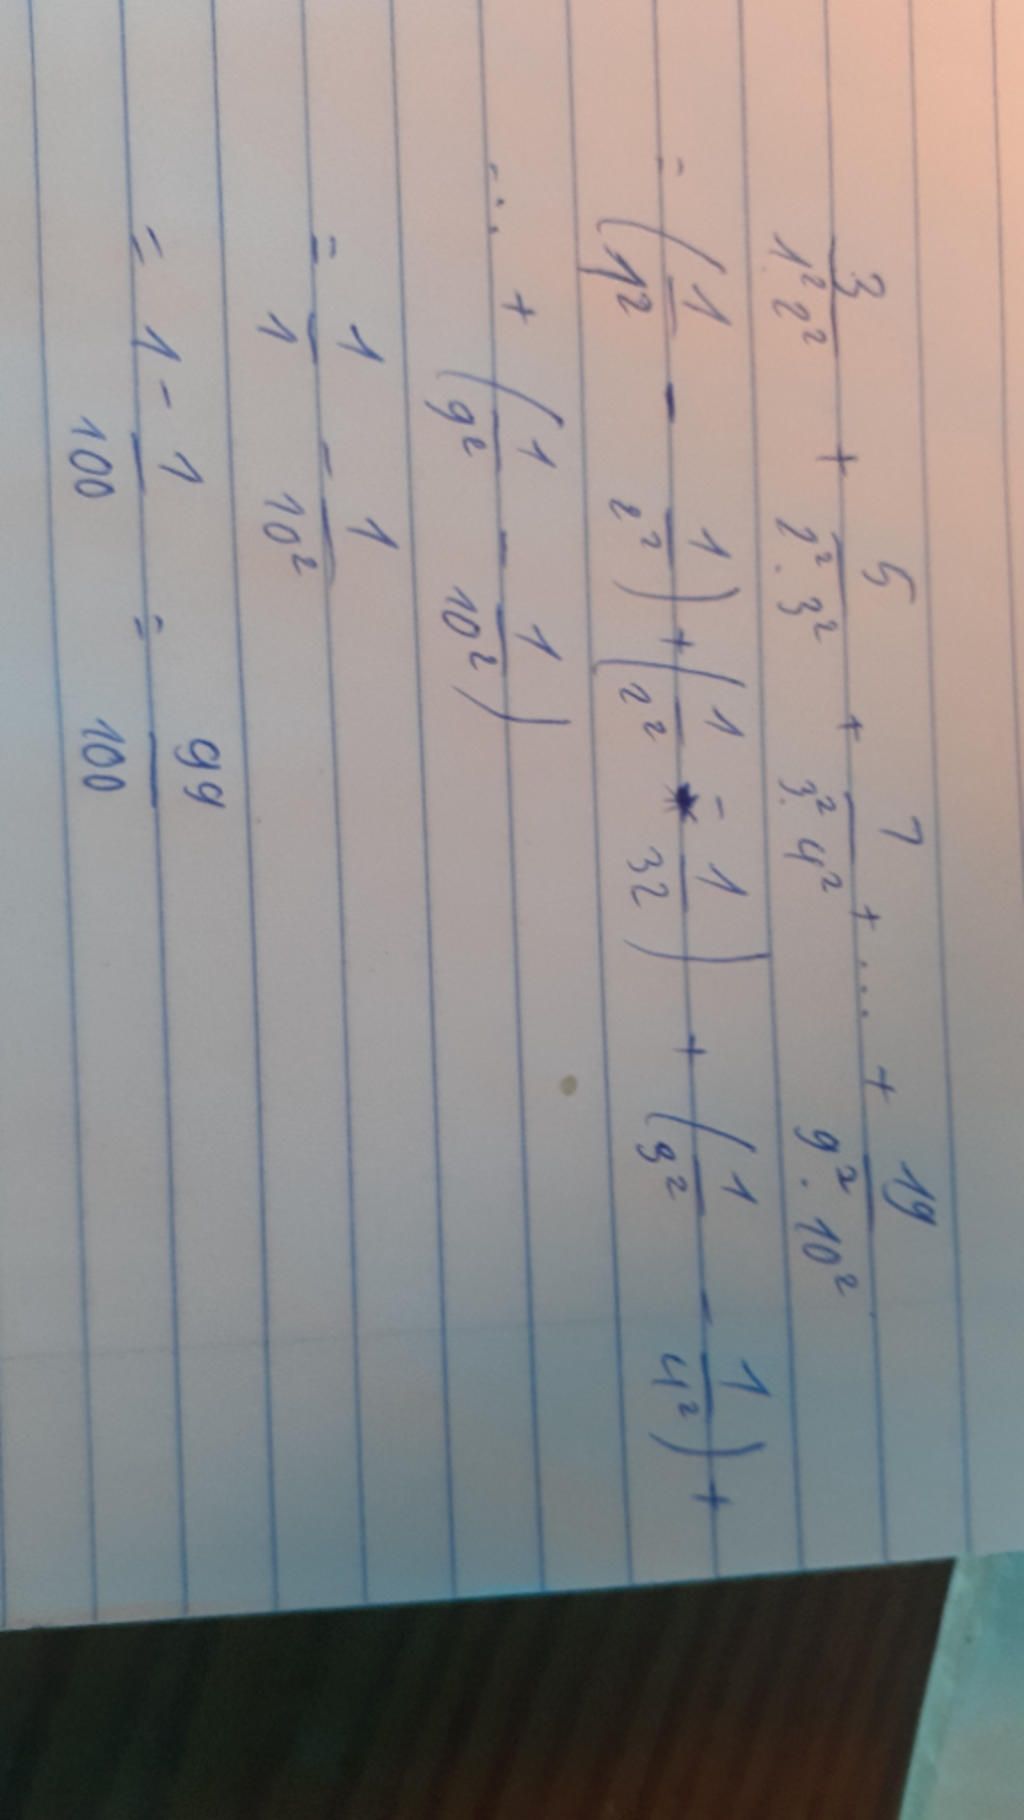 3/(1².2²) + 5/(2².3²) + 7/(3².4²) + ... + 19/(9².10²)
= (1/1² - 1/2²) + (1/2² - 1/3²) + (1/3² - 1/4²) +
... + (1/9² - 1/10²)
= 1/1 - 1/10²
= 1 - 1/100 = 99/100